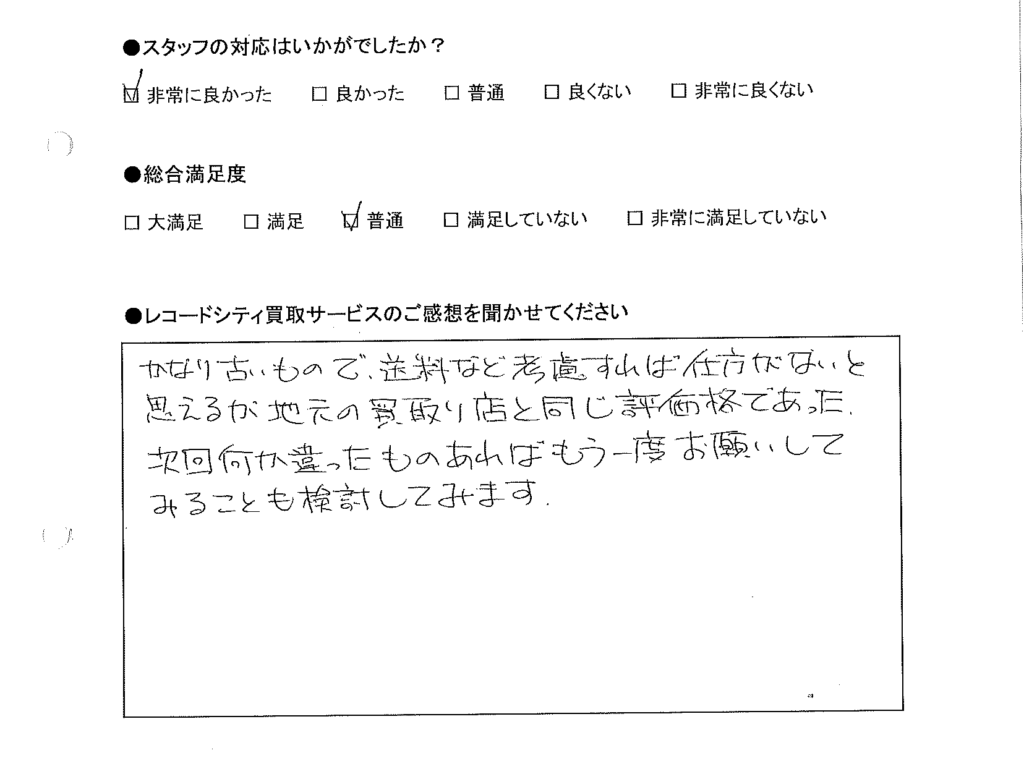 ●スタッフの対応はいかがでしたか？
☑ 非常に良かった　□ 良かった　□ 普通　□ 良くない　□ 非常に良くない
●総合満足度
□ 大満足　□ 満足　☑ 普通　□ 満足していない　□ 非常に満足していない
●レコードシティ買取サービスのご感想を聞かせてください
かなり古いもので、送料など考慮すれば仕方がないと
思えるが地元の買取り店と同じ評価格であった.
次回何か違ったものあればもう一度お願いして
みることも検討してみます.